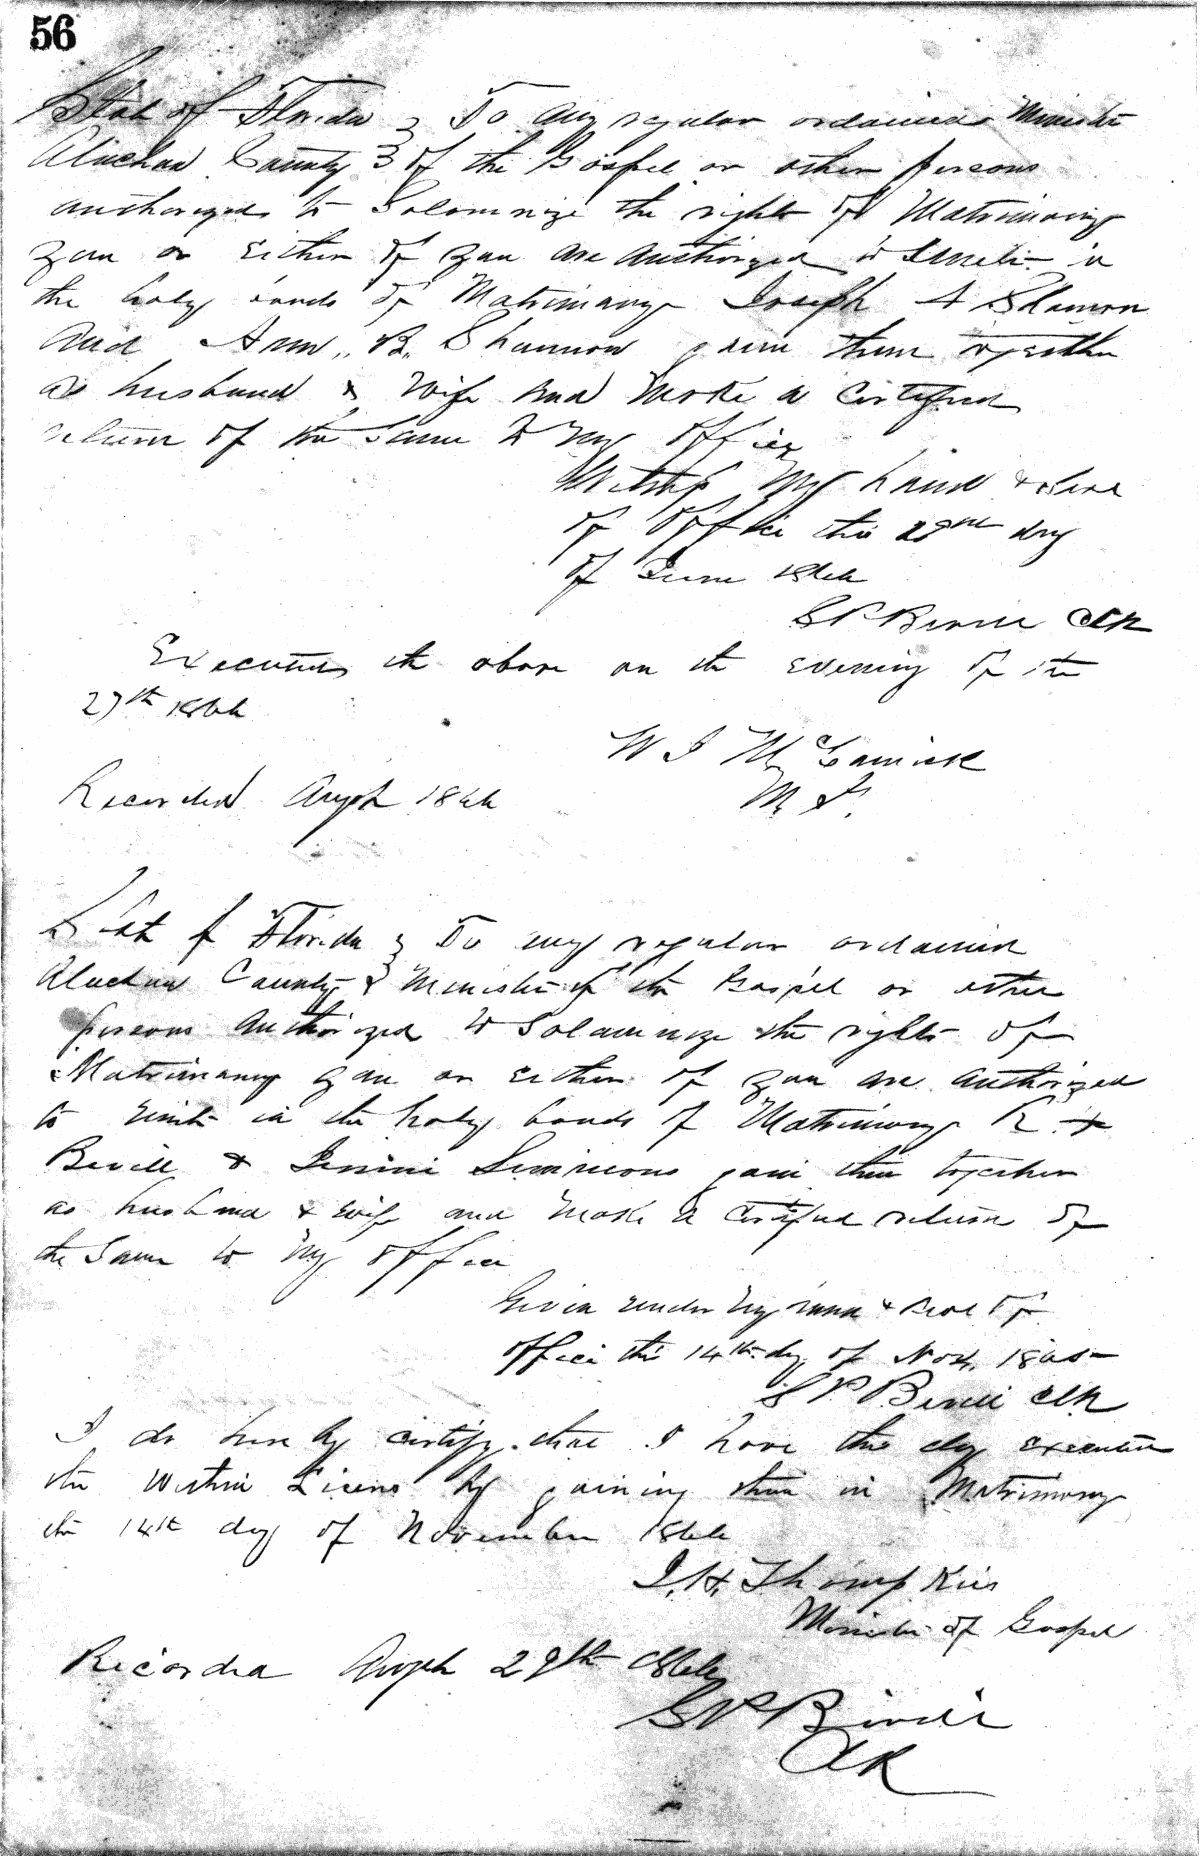 56
State of Florida } To any regular ordained Minister
Alachua County } of the Gospel or other persons
authorized to Solomnize the rights of Matrimony
you or either of you are authorized to Unite in
the holy bonds of Matrimony Joseph A
and Ann B. Shannon join them together
as husband & wife and make a certified
return of the same to my office
Witness my hand & seal
of office this day
of June 1866
S P Bevill Clk
Executed the above on the evening of the
27th 1866
W J McCormick
M. G.
Recorded 1866
State of Florida } To any regular ordained
Alachua County } Minister of the Gospel or other
persons authorized to Solamnize the rights of
Matrimony you or either of you are authorized
to unite in the holy bonds of Matrimony R
Bevill & Simmons join them together
as husband & wife and make a certified return of
the same to my office
Given under my hand & seal of
office this 14th day of Nov. 1865
S P Bevill Clk
I do hereby certify that I have this day executed
the within License by joining them in Matrimony
the 14th day of November 1866
J. H. Thompkins
Minister of Gospel
Recorded 29th 1866
S P Bevill
Clk